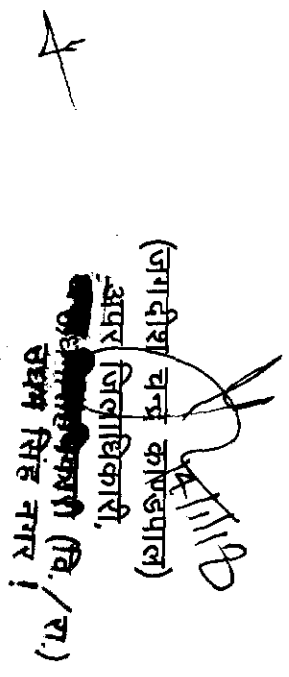 (जगदीश चन्द्र काण्डपाल)
अपर जिलाधिकारी,
(वि./रा.)
उधम सिंह नगर।